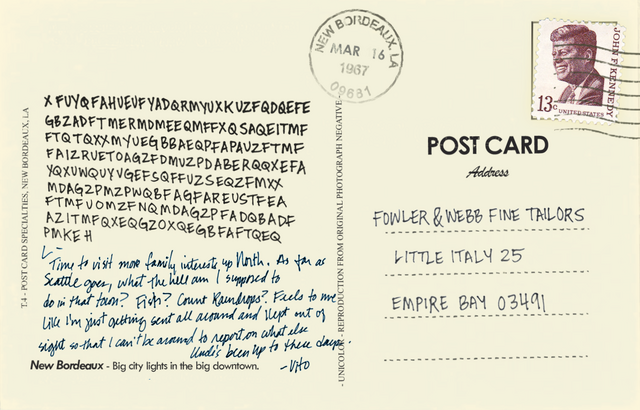 NEW BORDEAUX, LA
MAR 16
1967
09681
JOHN F. KENNEDY
13c
UNITED STATES
T.4 - POST CARD SPECIALTIES, NEW BORDEAUX, LA
X FUYQFAHUEUFYADQRMYUXKUZFQDQEFE
GBZADFTMERMDMEEQMFFXQSAQEITMF
FTQTQXXMYUEGBBAEQPFAPAUZFTMF
FAIZRUETOAGZFDMUZPDABERQQXEFA
YQXUWQUYVGEFSQFFUZSEQZFMXX
MDAGZPMZPWQBFAGFAREUSTFEA
FTMFUOMZFNQMDAGZPFADQBADF
AZITMFQXEQGZOXQEGBFAFTQEQ
PMKE H
L-
Time to visit more family interests up North. As far as
Seattle goes, what the hell am I supposed to
do in that town? Fish? Count Raindrops? Feels to me
like I'm just getting sent all around and kept out of
sight so that I can't be around to report on what else
Uncle's been up to these days.
-Vito
New Bordeaux - Big city lights in the big downtown.
- UNICOLOR - REPRODUCTION FROM ORIGINAL PHOTOGRAPH NEGATIVE -
POST CARD
Address
FOWLER & WEBB FINE TAILORS
LITTLE ITALY 25
EMPIRE BAY 03491